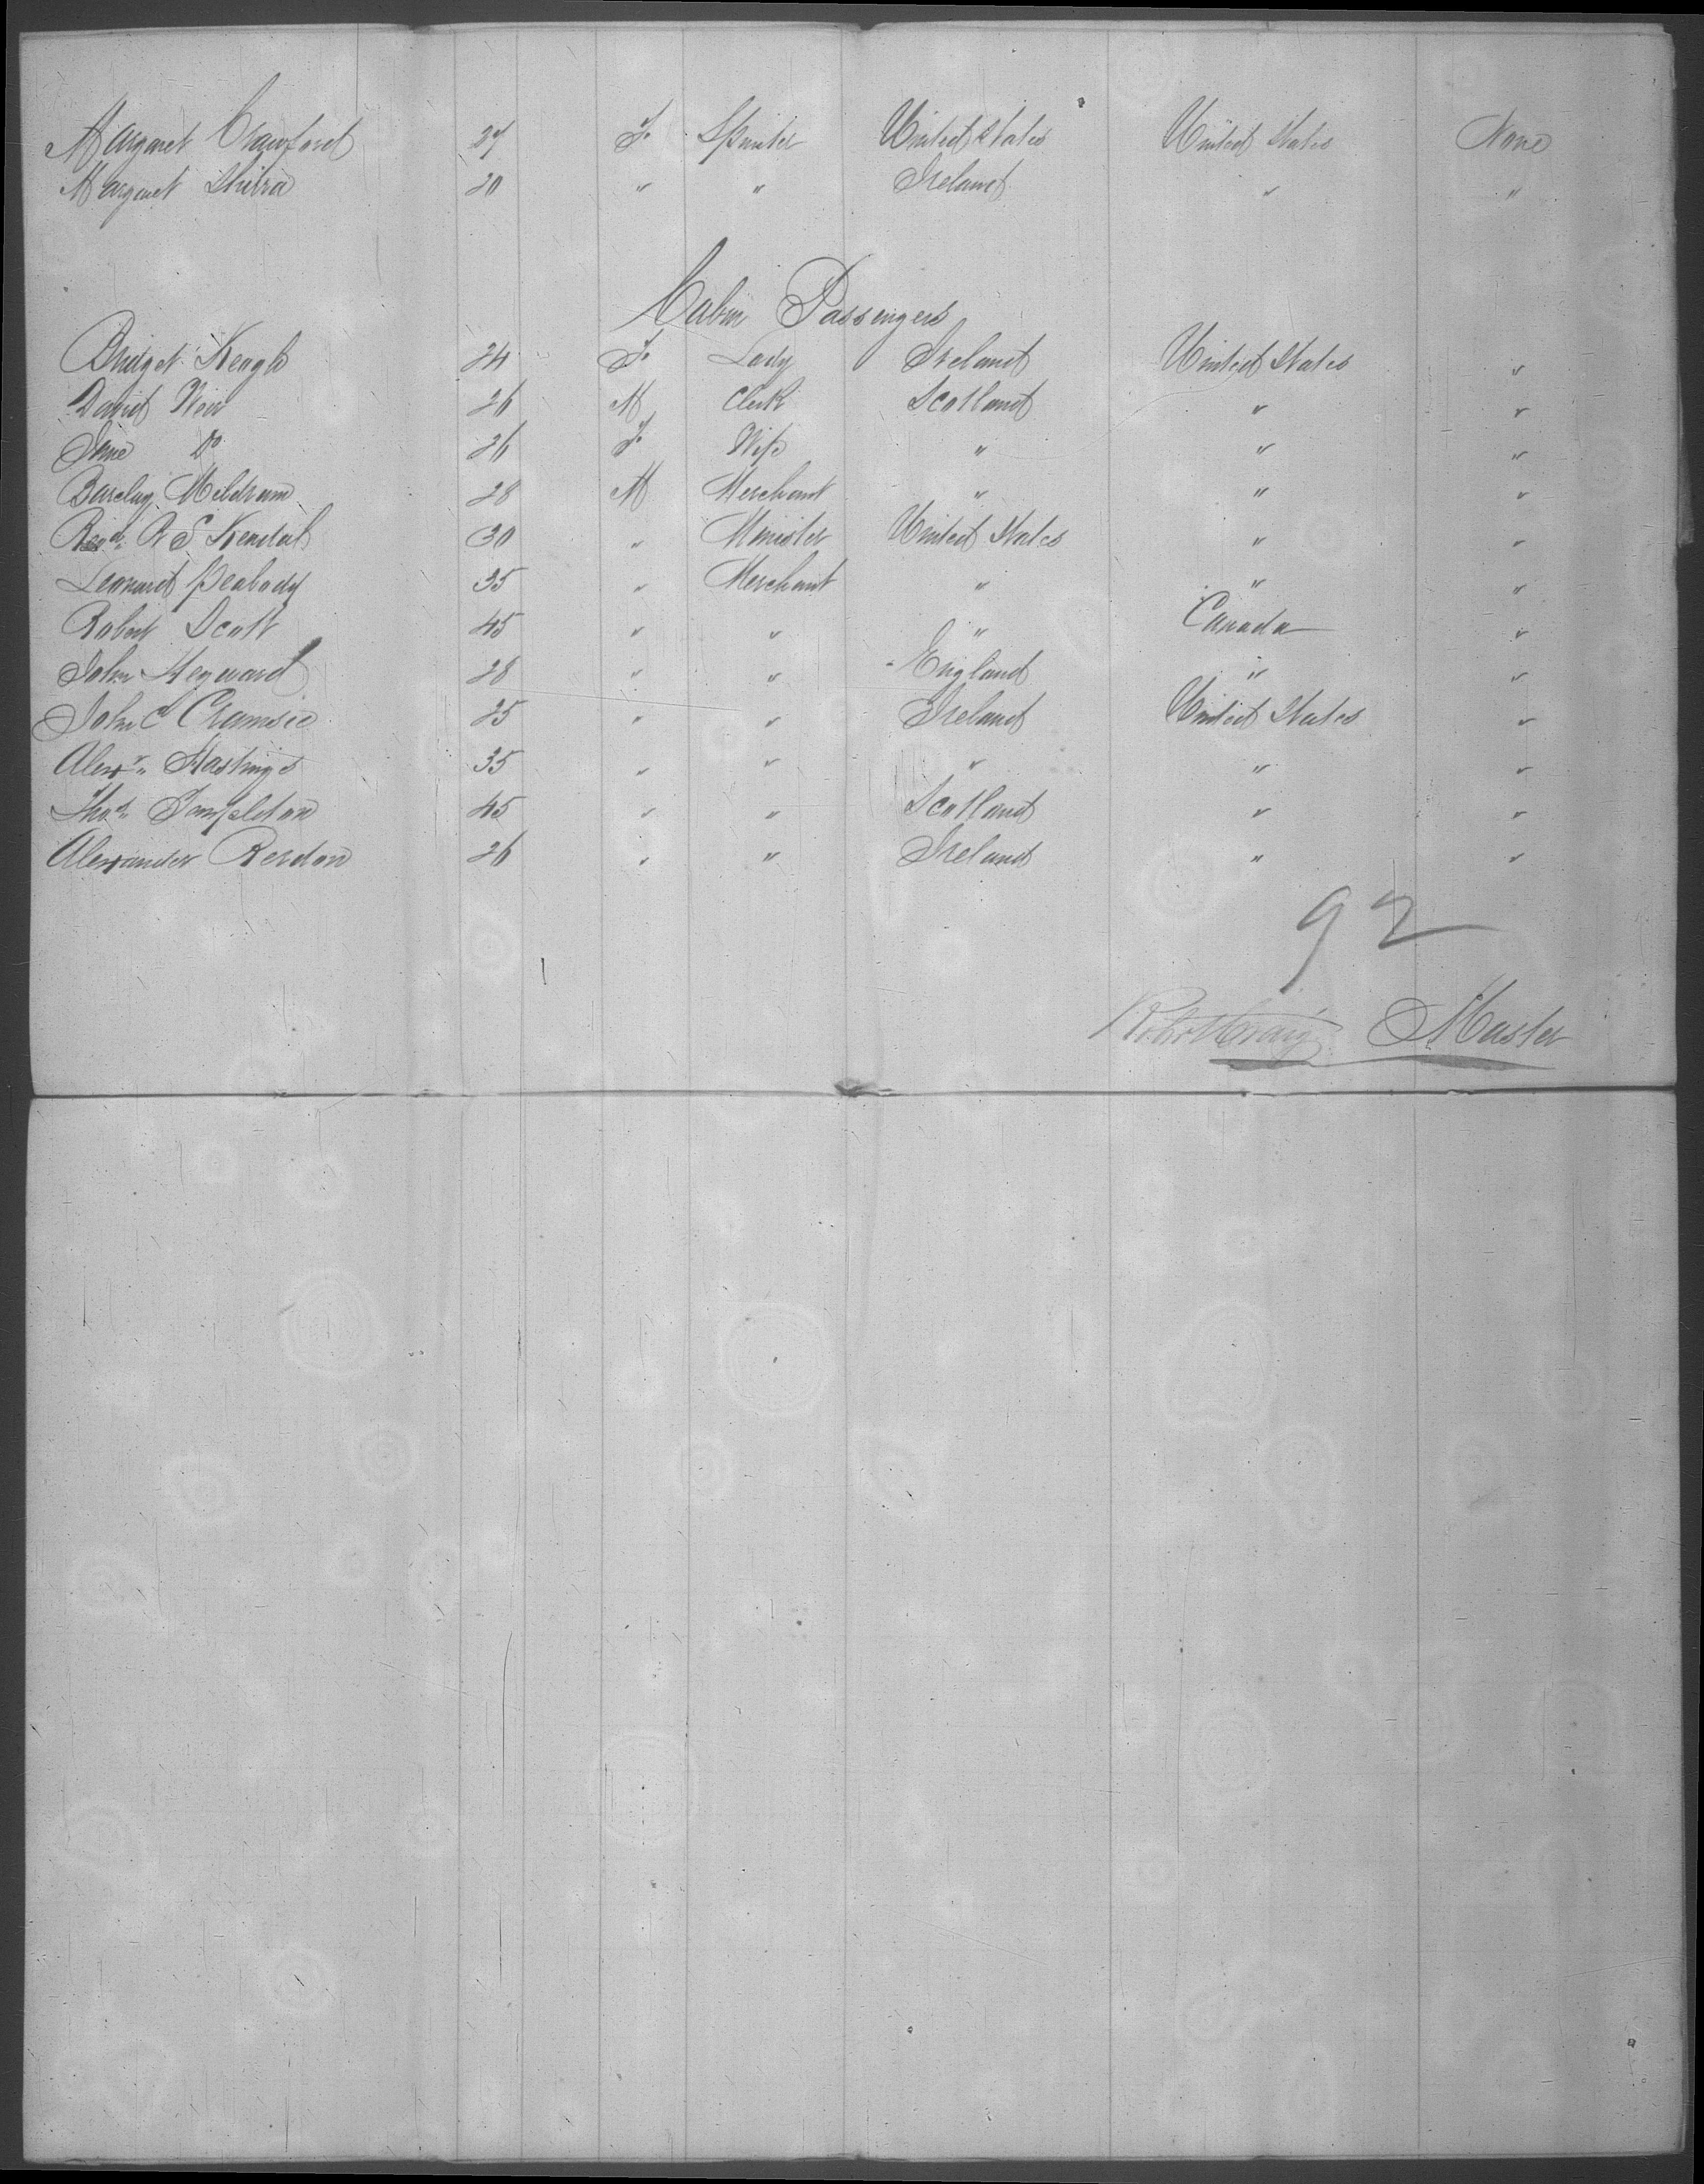 Margaret Crawford 27 F. Spinster United States United States None
Margaret 20 " " Ireland " "
Cabin Passengers
Bridget Keogh 24 F. Lady Ireland United States "
David Weir 26 M Clerk Scotland " "
Jane Do 26 F. Wife " " "
Barclay Meldrum 28 M Merchant " " "
Revd. R S Kendall 30 " Minister United States " "
Leonard Peabody 35 " Merchant " " "
Robert Scott 45 " " " Canada "
John Heyward 28 " " England " "
John C Cramsie 25 " " Ireland United States "
Alexr. Hastings 35 " " " " "
Thos. Templeton 45 " " Scotland " "
Alexander Reidon 26 " " Ireland " "
92
Robt Craig Master